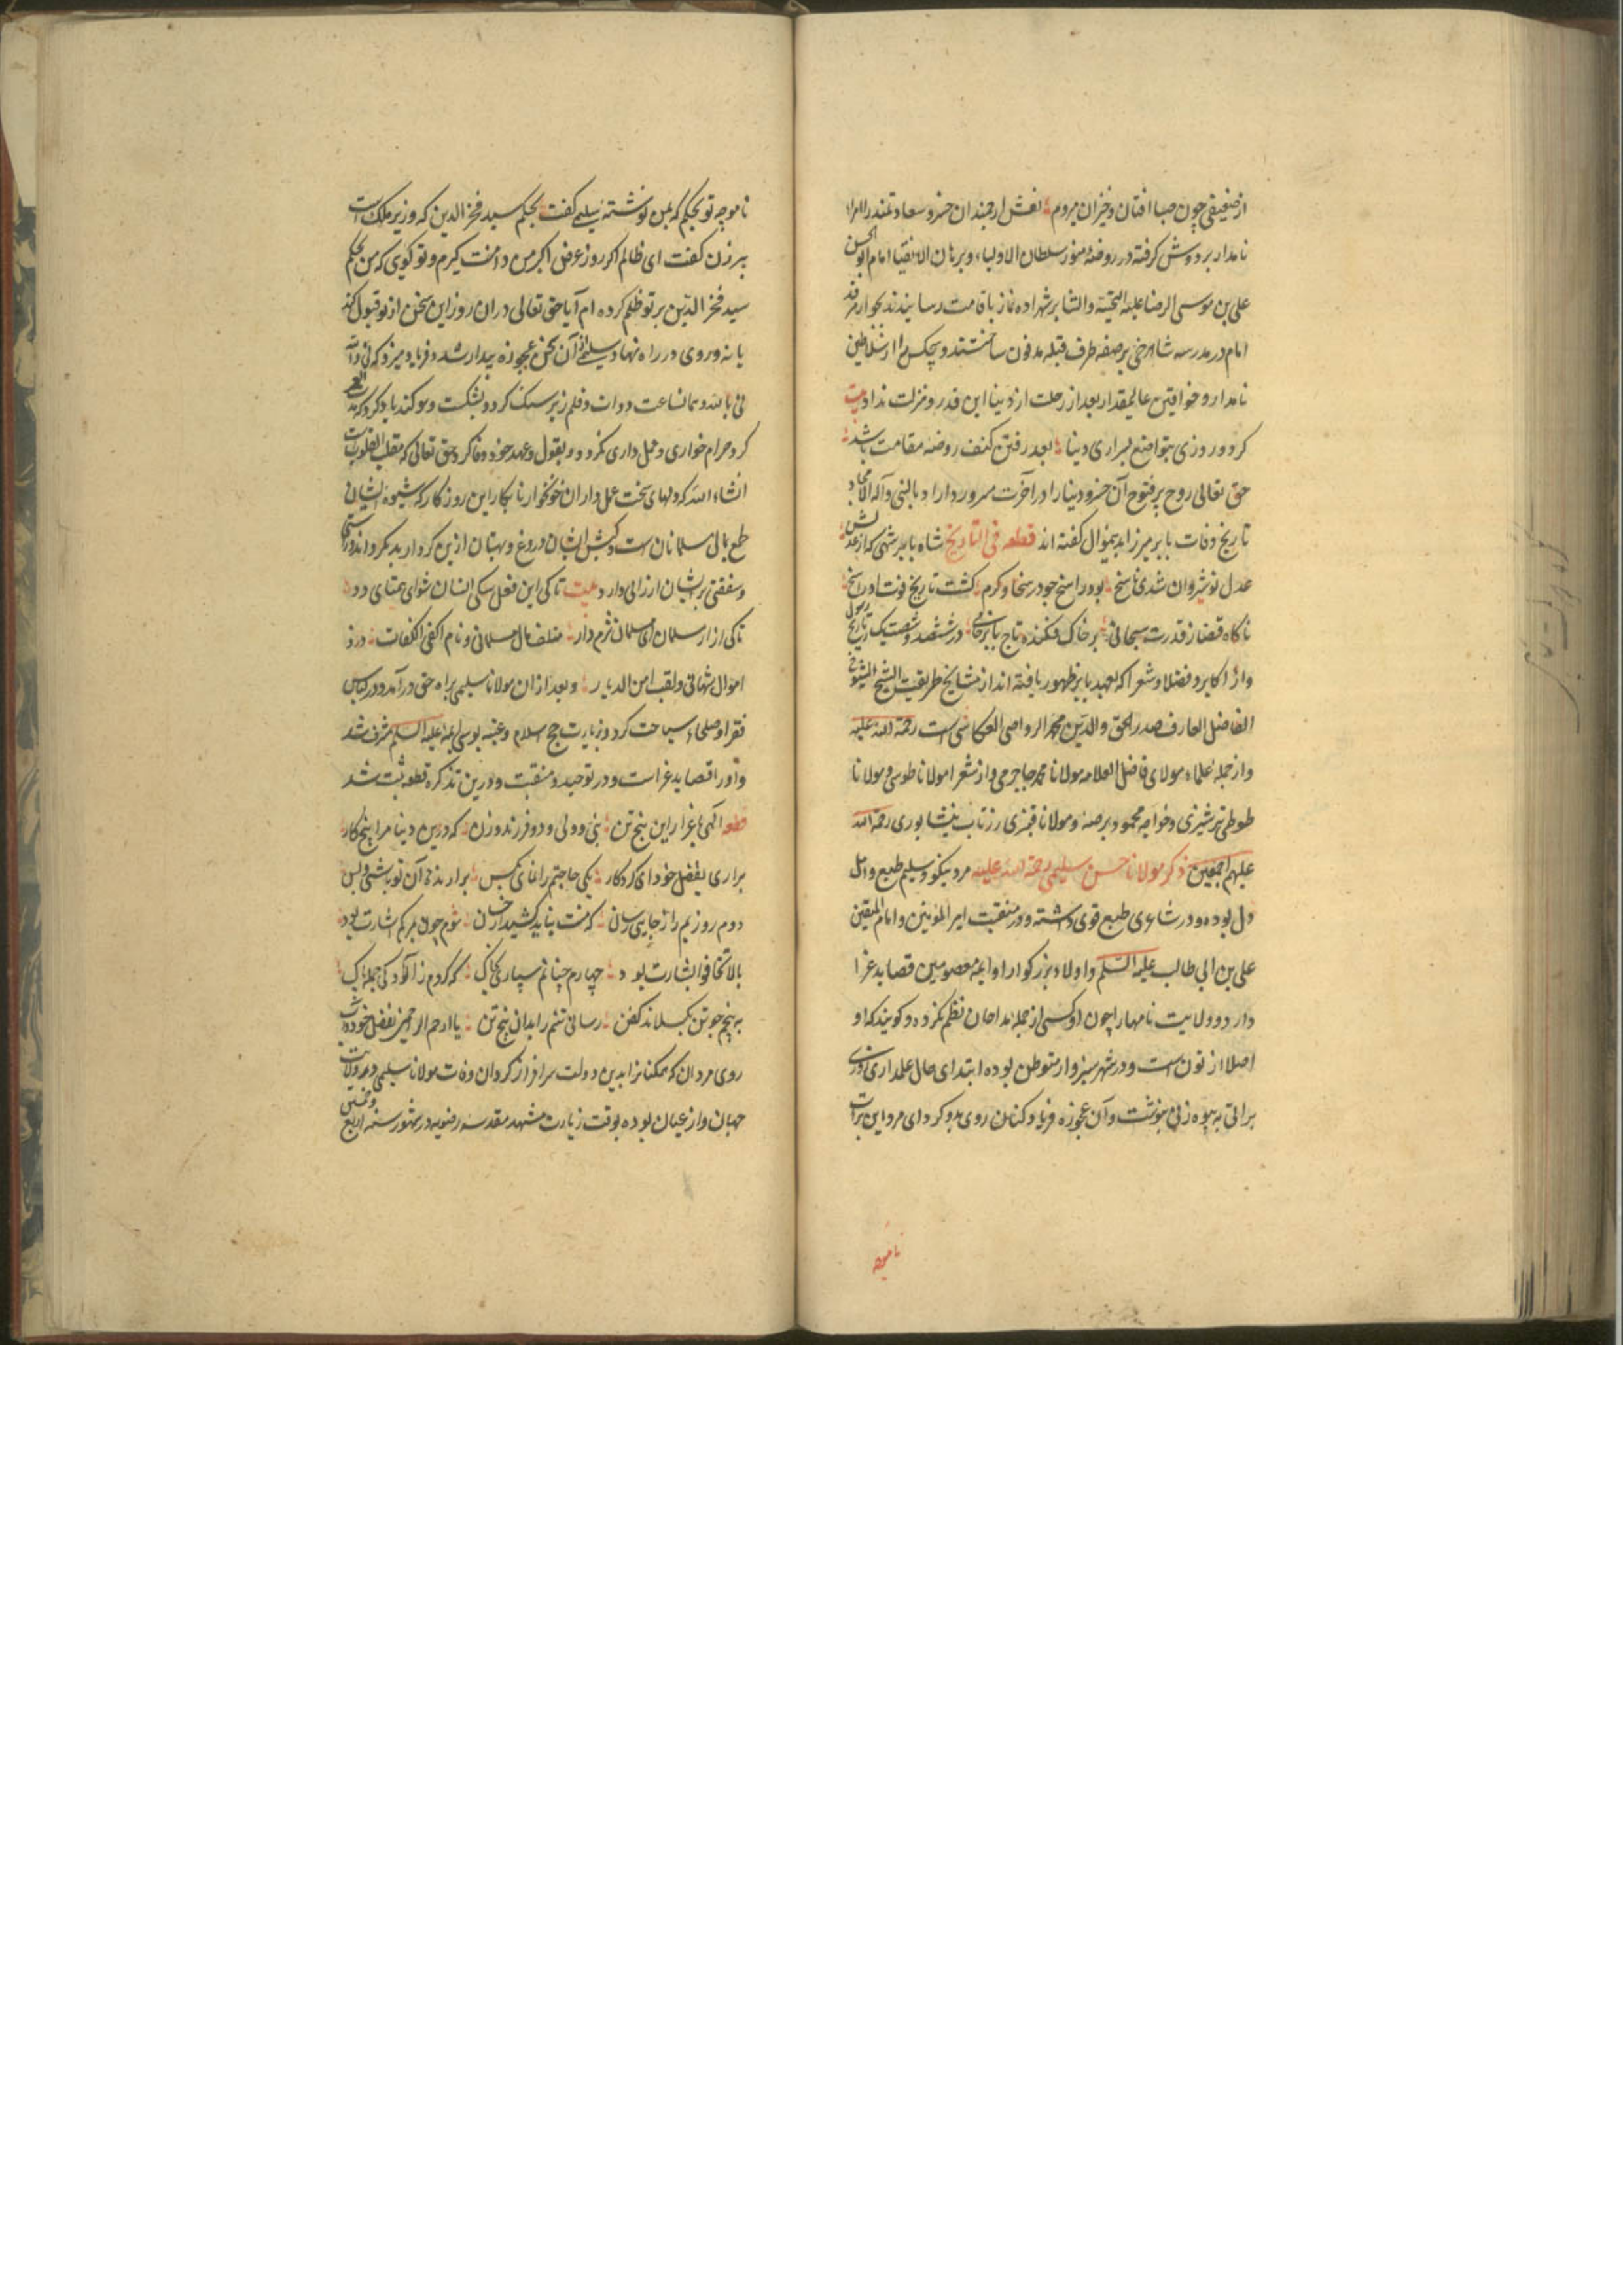 از ضعیفی چون صبا افتان و خیزان میروم نعش ارجمند ان خسرو سعادتمند را امراء
نامدار بر دوش گرفته در روضهٔ منور سلطان الاولیاء و برهان الاتقیا امام ابو الحسن
علی بن موسی الرضا علیه التحیة والثنا بر شهزاده نماز باقامت رسانیدند بجوار مرقد
امام در مدرسه شاهرخی بر صفه طرف قبله مدفون ساختند و هیچکس را از سلاطین
نامدار و خواقین عالیمقدار بعد از رحلت از دنیا این قدر و منزلت نداد بیت
کرد و روزی بتواضع لسرای دینا بعد رفتن کنف روضه مقامت باشد
حق تعالی روح پرفتوح آن خسرو دیندار را در آخرت مسرور داراد بالنبی و آله الامجاد
تاریخ وفات بابر میرزا بدینموال گفته اند قطعه فی التاریخ شاه بابر شهی که از عدلش
عدل نوشیروان شدی ناسخ بود راسخ چو در سخا و کرم کشت تاریخ فوت او راسخ
ناکاه قضا ز قدرت سبحانی بر خاک فکنده تاج بابر خانی در ششصد و شصت یک ز تاریخ رسول
واز اکابر و فضلا و شعرا که بعهد بابر ظهور یافته اند از مشایخ طریقت الشیخ الشیوخ
الفاضل العارف صدر الحق والدین محمد الرواصی العکاشی است رحمة الله علیه
و از جمله علماء مولای فاضل العلامه مولانا محمد جاجرمی و از شعرا مولانا طوسی و مولانا
طوطی ترشیزی و خواجه محمود برصه و مولانا قنبری رزتاب نیشابوری رحمة الله
علیهم اجمعین ذکر مولانا حسن سلیمی رحمة الله علیه مرد نیکو و سلیم طبع و اهل
دل بوده و در شاعری طبع قوی داشته و در منقبت امیر المؤمنین و امام المتقین
علی بن ابی طالب علیه السلم و اولاد بزرگوار او ایمه معصومین قصاید غرا
دارد و ولایت نامها را چون او کسی از جمله مداحان نظم نکرده و گویند که او
اصلا از تون است و در شهر سبزوار متوطن بوده ابتدای حال عملداری کردی
براتی به بیوه زنی نوشت و آن عجوزه فریاد کنان روی بدو کرد ای مرد این برات
نامچه
ناموجه تو بحکم که بمن نوشتهٔ سلیمی گفت بحکم سید فخر الدین که وزیر ملک است
پیر زن گفت ای ظالم اگر روز عرض اکبر من دامنت گیرم و تو گوی که من بحکم
سید فخر الدین بر تو ظلم کرده ام آیا حق تعالی دران روز این سخن از تو قبول کند
یا نه و روی در راه نهاد سلیمی از آن سخن عجوزه بیدار شد و فریاد میزد که نی والله
نی بالله و همانساعت دوات و قلم زیر سنگ کرد و بشکست و سوگند یاد کرد که مدة العمر
گرد حرام خواری و عمل داری نگردد و بقول و عهد خود وفا کرد حق تعالی که مقلب القلوبست
انشاء الله که دلهای سخت عمل داران خونخوار نابکار این روزگار که شیوه ایشان
طمع بمال مسلمانان است و کیش ایشان دروغ و بهتان ازین کردار بد بگرداند و رستگاری
و شفقتی بر ایشان ارزانی دارد بیت تا کی این فعل سکی انسان شو ای همتای دد
تا کی ازار مسلمان ای مسلمان شرم دار متلف مال مسلمانی و نام اکفی الکفات درد
اموال شهانی و لقب امن الدیار و بعد ازان مولانا سلیمی براه حق درآمد و در لباس
فقرا و صلحاء سیاحت کرد و زیارت حج اسلام و عتبه بوسی ایمه علیه السلم مشرف شد
و اورا قصاید غراست و در توحید و منقبت و درین تذکره قطعه ثبت شد
قطعه الهی باعزاز این پنج تن نبی و ولی و دو فرزند و زن که درین دینا مرا پنج کار
براری بفضل خود ای کردکار یکی حاجتم را نمانی بکس برارنده آن تو باشی و بس
دوم روزیم را ز جایی رسان که منت نباید کشید از خسان سوم چون بمرگم اشارت بود
بالا تخافوا بشارت بود چهارم چنانم سپاری بخاک که کردم ز آلودکی جمله پاک
به پنجم چو تن بکسلاند کفن رسانی تنم را بدان پنج تن یا ارحم الراحمین بفضل خود و آب
روی مردان که ممکنانرا بدین دولت سرافراز کردان وفات مولانا سلیمی در ولایت
جهان و ارغیان بوده بوقت زیارت مشهد مقدسه رضویه در شهور سنه اربع و خمسین